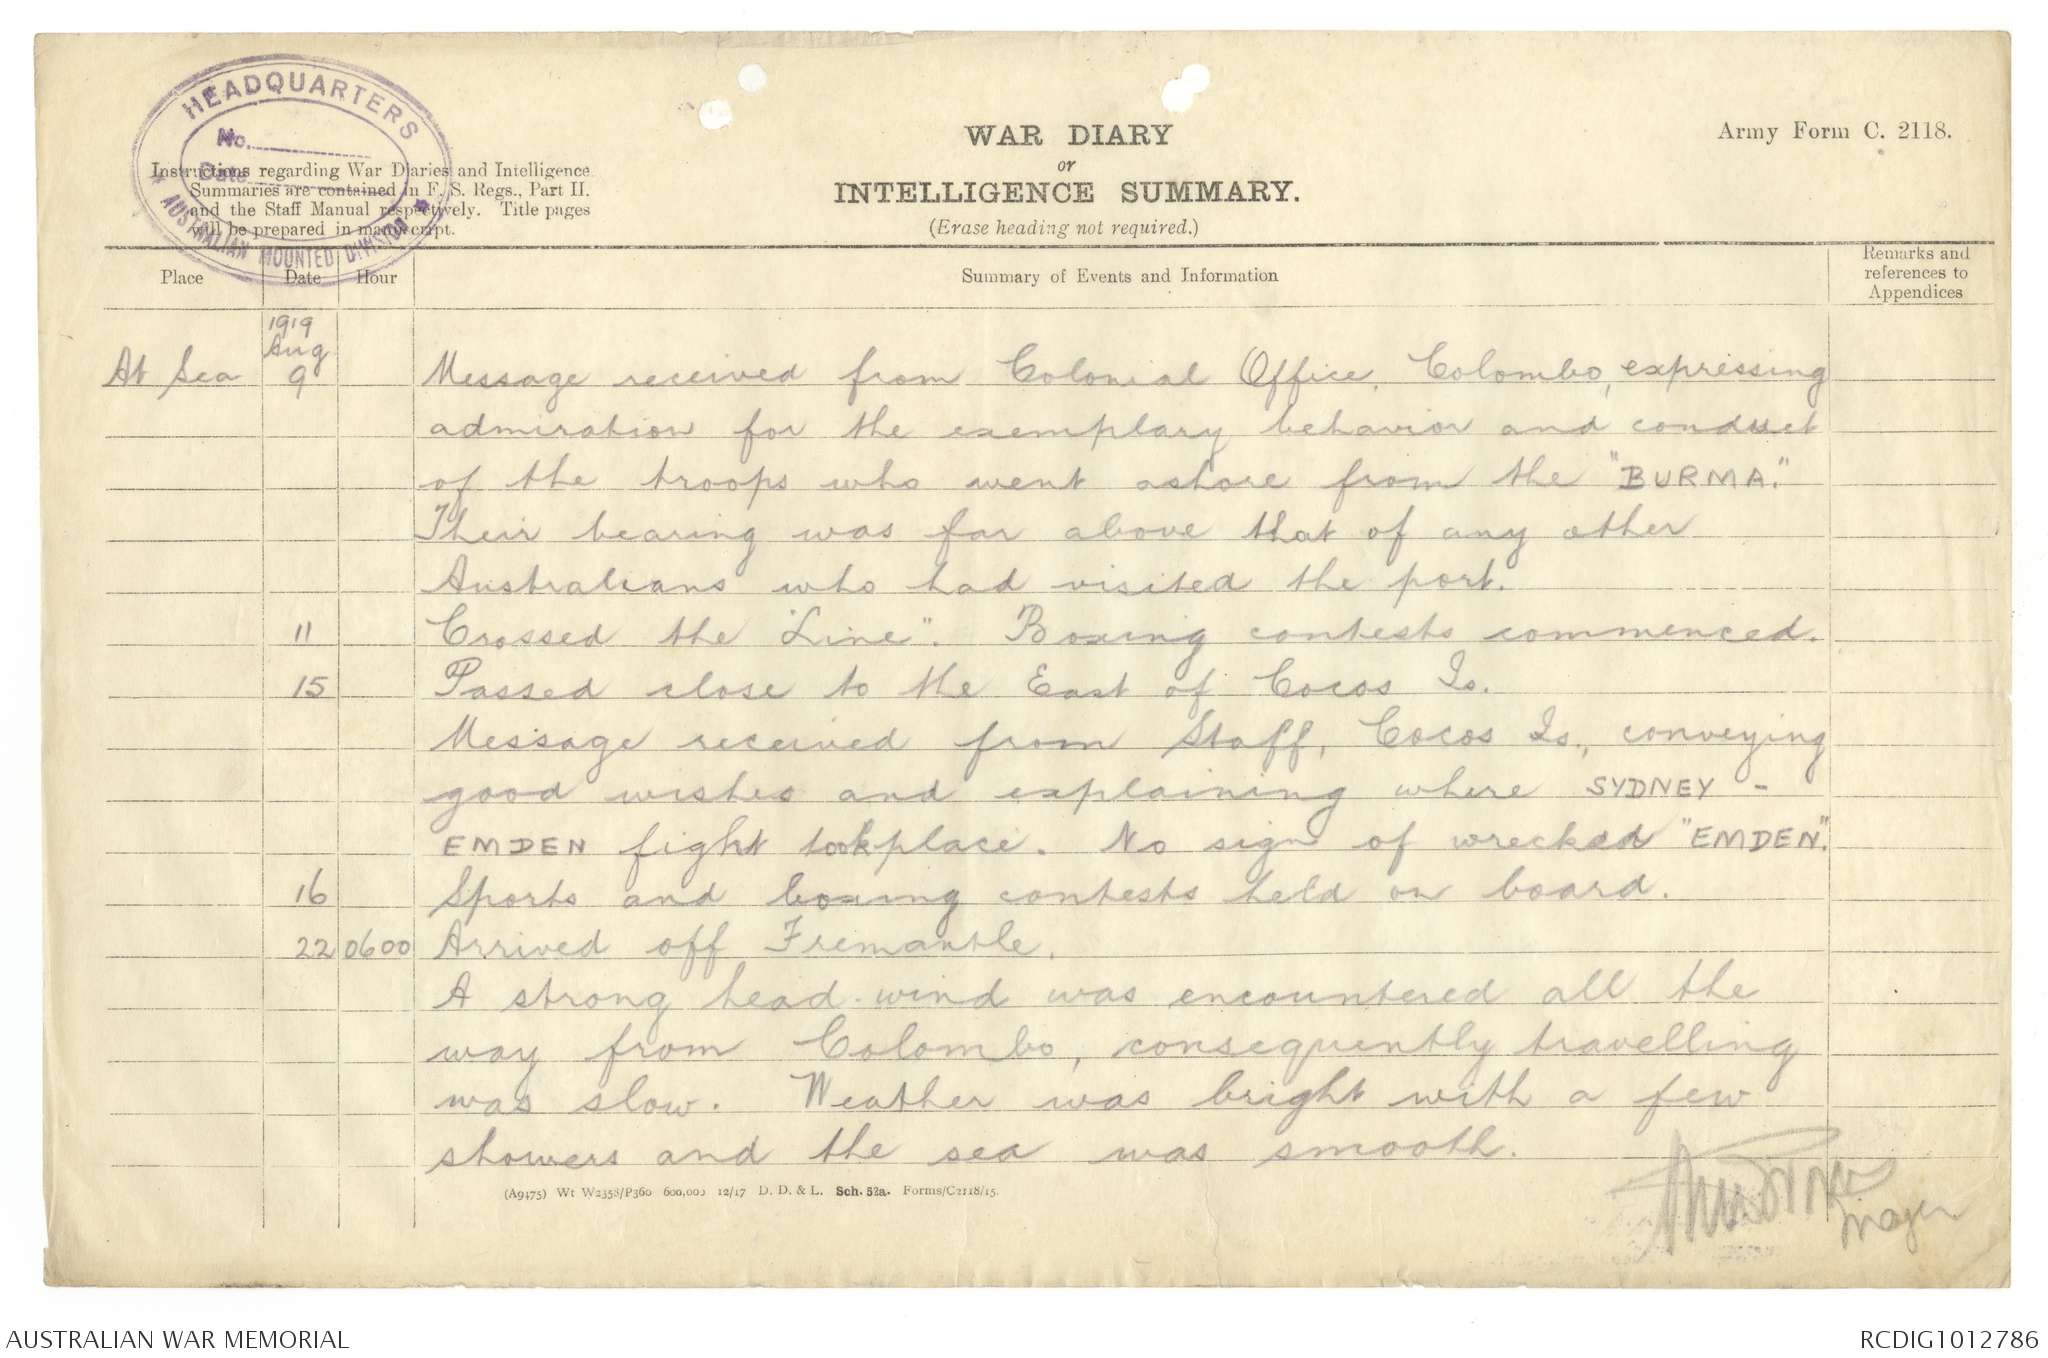 HEADQUARTERS
No.
Date
AUSTRALIAN MOUNTED DIVISION
Instructions regarding War Diaries and Intelligence
Summaries are contained in F. S. Regs., Part II.
and the Staff Manual respectively. Title pages
will be prepared in manuscript.
WAR DIARY
or
INTELLIGENCE SUMMARY.
(Erase heading not required.)
Army Form C. 2118.
Place Date Hour Summary of Events and Information Remarks and references to Appendices
1919
Aug
At Sea 9 Message received from Colonial Office, Colombo, expressing
admiration for the exemplary behavior and conduct
of the troops who went ashore from the "BURMA."
Their bearing was far above that of any other
Australians who had visited the port.
11 Crossed the "Line". Boxing contests commenced.
15 Passed close to the East of Cocos Is.
Message received from Staff, Cocos Is., conveying
good wishes and explaining where SYDNEY -
EMDEN fight took place. No sign of wrecked "EMDEN".
16 Sports and boxing contests held on board.
22 0600 Arrived off Fremantle.
A strong head-wind was encountered all the
way from Colombo, consequently travelling
was slow. Weather was bright with a few
showers and the sea was smooth.
Major
(A9475) Wt W2358/P360 600,000 12/17 D. D. & L. Sch. 52a. Forms/C2118/15.
AUSTRALIAN WAR MEMORIAL
RCDIG1012786